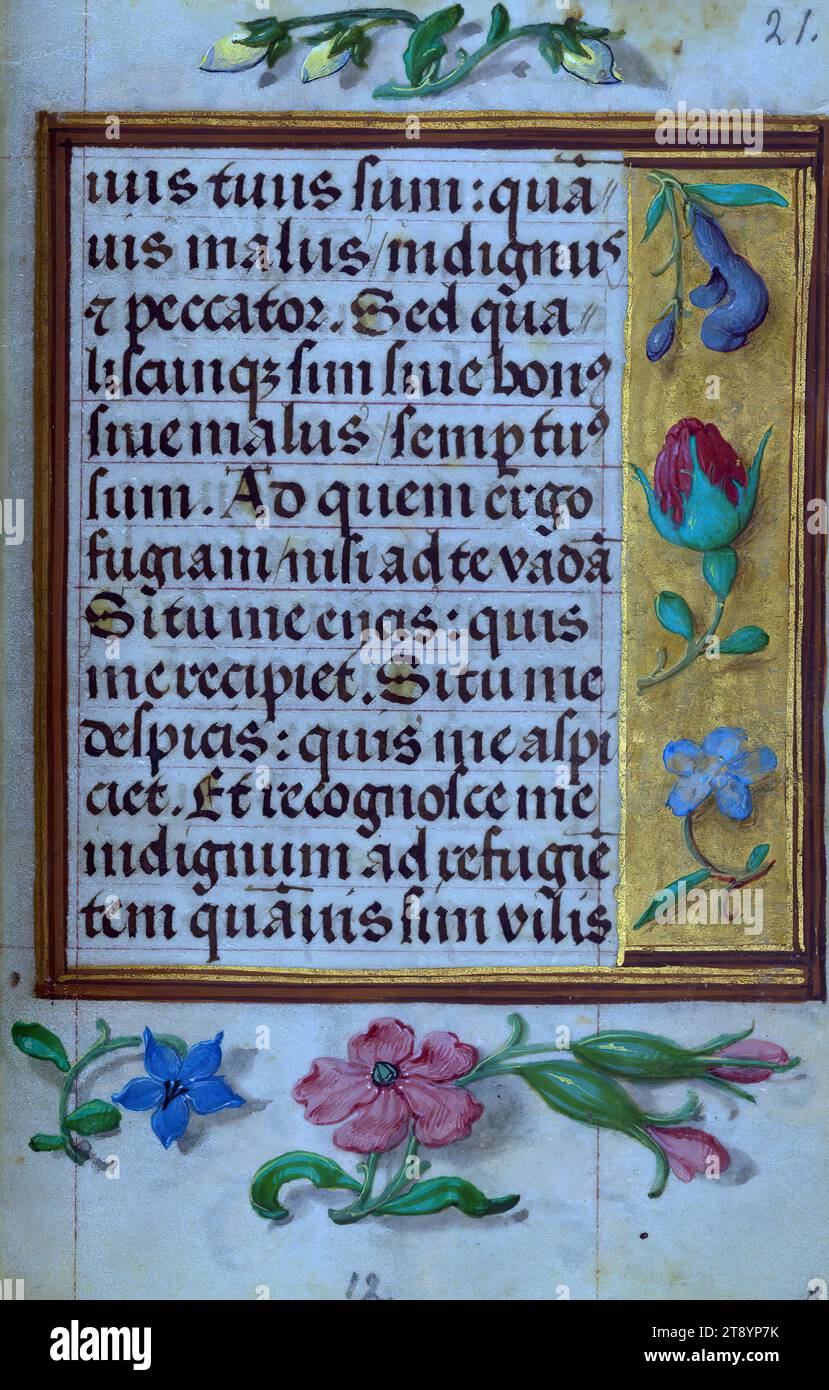 21.
uus tuus sum: quā
uis malus / indignus
⁊ peccator. Sed qua
liscunqꝫ sim siue bonꝰ
siue malus / semp tuꝰ
sum. Ad quem ergo
fugiam / nisi ad te vadā
Si tu me eiicis: quis
me recipiet. Si tu me
despicis: quis me aspi
ciet. Et recognosce me
indignum ad te fugiē
tem quāuis sim vilis
12
alamy
Image ID: 2T8YP7K
www.alamy.com